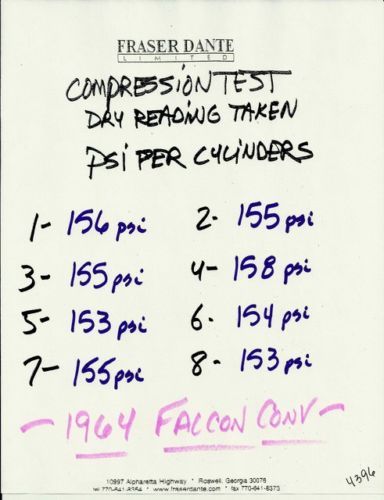 FRASER DANTE
LIMITED
COMPRESSION TEST
DRY READING TAKEN
PSI PER CYLINDERS
1- 156 psi 2- 155 psi
3- 155 psi 4- 158 psi
5- 153 psi 6- 154 psi
7- 155 psi 8- 153 psi
- 1964 FALCON CONV -
10997 Alpharetta Highway * Roswell, Georgia 30076
tel 770-641-8354 * www.fraserdante.com * fax 770-641-8373
4396